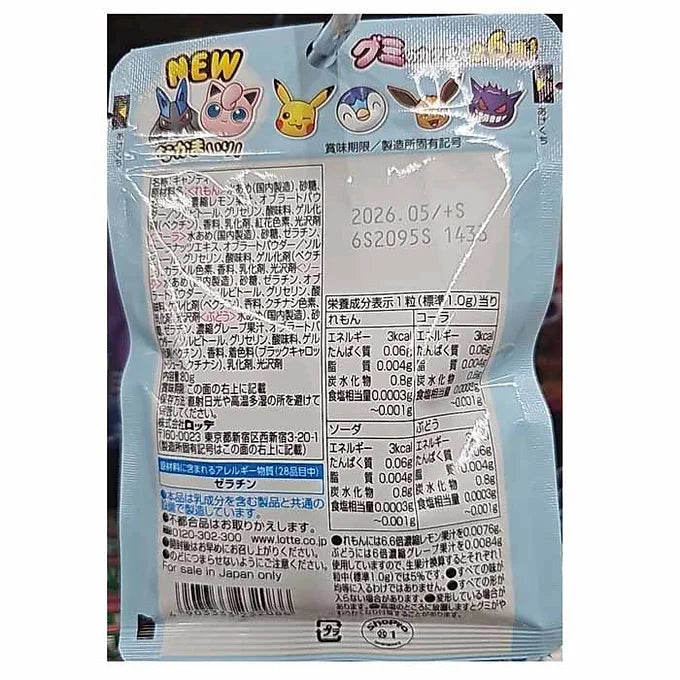 NEW
グミ
あけくち
あけくち
賞味期限／製造所固有記号
2026.05/+S
6S2095S
名称:キャンディ
<れもん>水あめ(国内製造)、砂糖、
濃縮レモン果汁、オブラートパウ
ダー/ソルビトール、グリセリン、酸味料、ゲル化
剤(ペクチン)、香料、乳化剤、紅花色素、光沢剤
水あめ(国内製造)、砂糖、ゼラチン、
コーラナッツエキス、オブラートパウダー/ソル
ビトール、グリセリン、酸味料、ゲル化剤(ペクチ
ン)、カラメル色素、香料、乳化剤、光沢剤<ソー
ダ>水あめ(国内製造)、砂糖、ゼラチン、オブ
ラートパウダー/ソルビトール、グリセリン、酸味
料、ゲル化剤(ペクチン)、香料、クチナシ色素、
乳化剤、光沢剤<ぶどう>水あめ(国内製造)、砂
糖、ゼラチン、濃縮グレープ果汁、オブラートパウ
ダー/ソルビトール、グリセリン、酸味料、ゲル
化剤(ペクチン)、香料、着色料(ブラックキャロッ
ト、クチナシ)、乳化剤、光沢剤
内容量 80g
この面の右上に記載
保存方法 直射日光や高温多湿の所を避けて
保存してください。
株式会社ロッテ
〒160-0023 東京都新宿区西新宿3-20-1
(製造所固有記号はこの面の右上に記載)
原材料に含まれるアレルギー物質(28品目中)
ゼラチン
●本品は乳成分を含む製品と共通の
設備で製造しています。
●不都合品はお取りかえします。
0120-302-300 www.lotte.co.jp
●開封後はお早めにお召し上がりください。
●のどにつまらせないようにご注意ください。
For sale in Japan only
栄養成分表示1粒(標準1.0g)当り
れもん コーラ
エネルギー 3kcal エネルギー 3kcal
たんぱく質 0.06g たんぱく質 0.06g
脂質 0.004g 脂質 0.004g
炭水化物 0.8g 炭水化物 0.8g
食塩相当量 0.0003g 食塩相当量 0.0003g
~0.001g ~0.001g
ソーダ ぶどう
エネルギー 3kcal エネルギー 3kcal
たんぱく質 0.06g たんぱく質 0.06g
脂質 0.004g 脂質 0.004g
炭水化物 0.8g 炭水化物 0.8g
食塩相当量 0.0003g 食塩相当量 0.0003g
~0.001g ~0.001g
●れもんには6.6倍濃縮レモン果汁を0.0076g、
ぶどうには6倍濃縮グレープ果汁を0.0084g
使用していますので、生果汁換算するとそれぞれ1
粒中(標準1.0g)では5%です。●すべての味が
均等に入るわけではありません。●すべての形が
入らない場合があります。●変形している場合が
あります。●高温のところに放置しますとグミがや
プラ
ShoPro